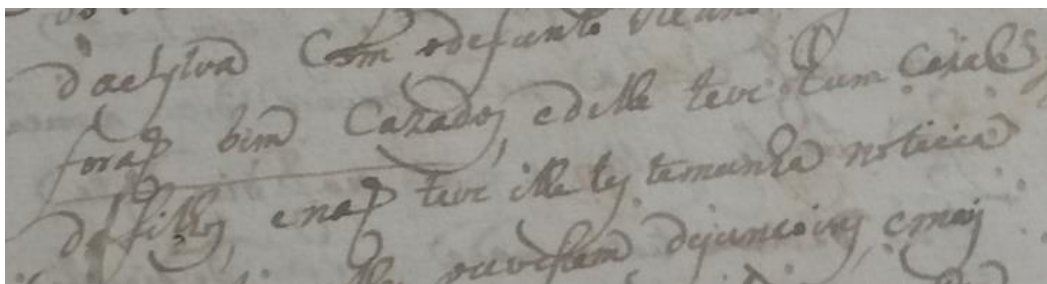 daSylva Com odefunto
foraõ bem Cazados, edelle teve hum Cazal
de filhos, enaõ teve elle testemunha noticia
ouvessem disuncoins, emais